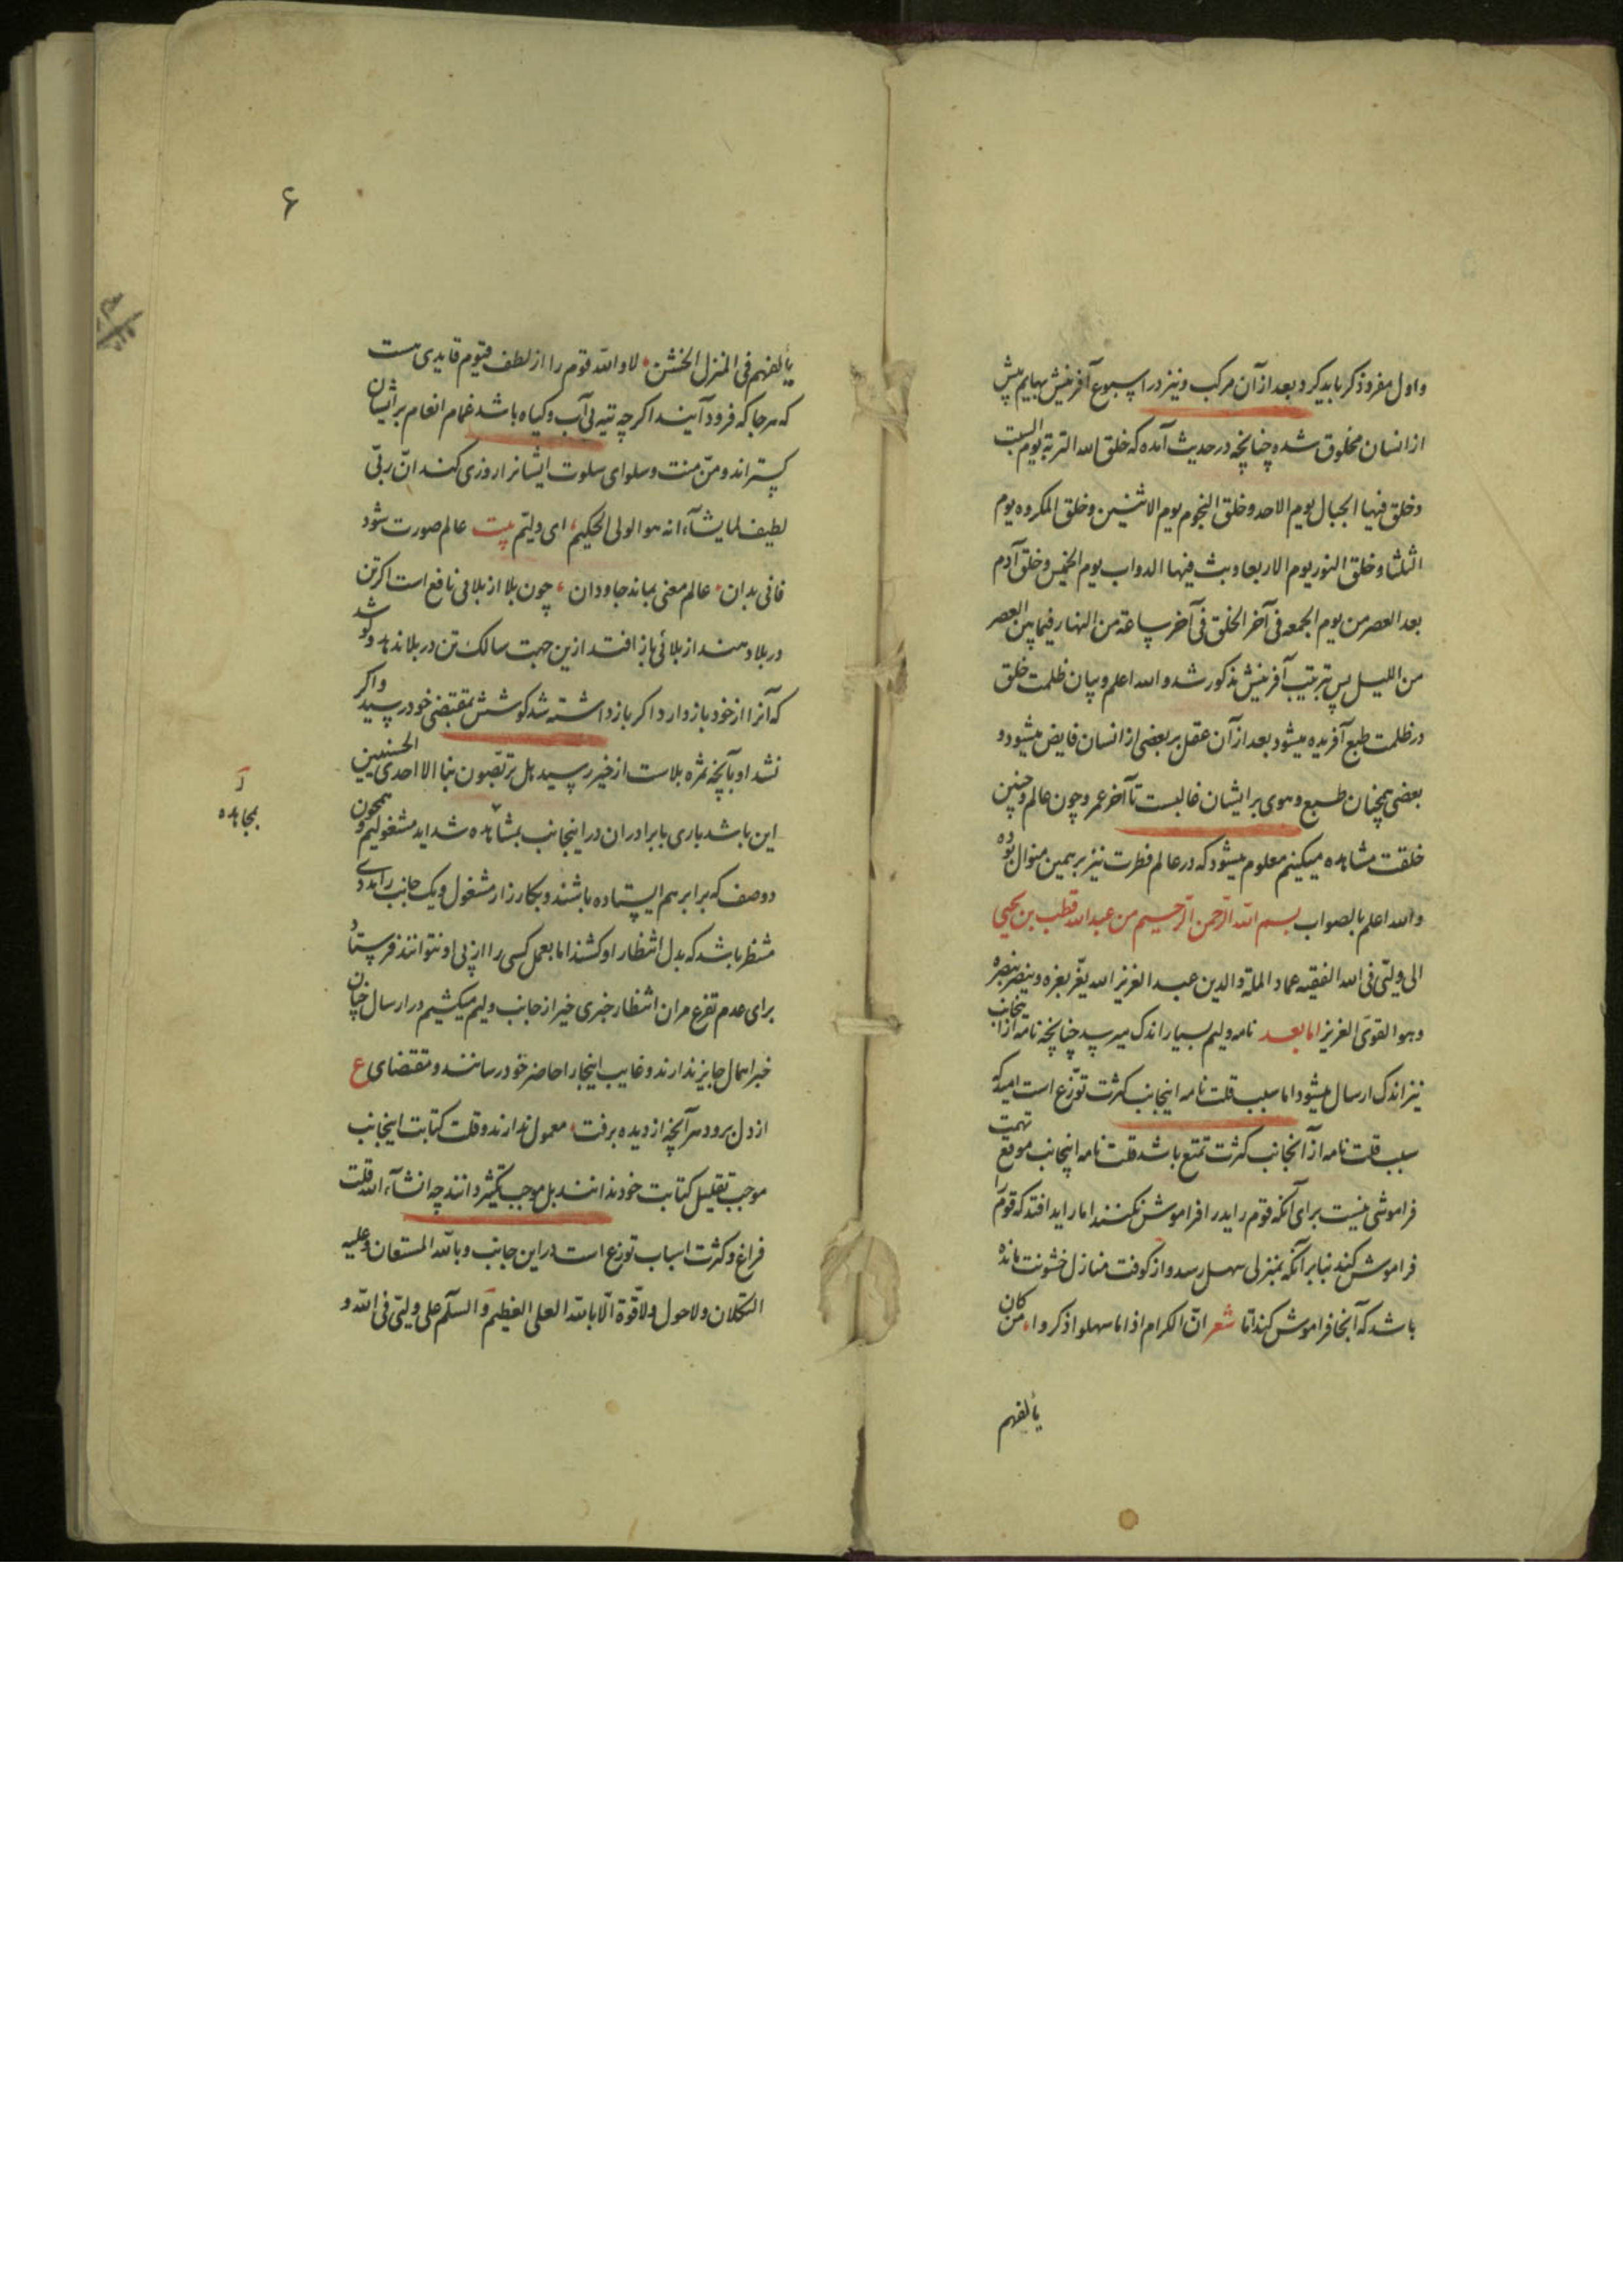 و اول مفرد ذکر باید کرد و بعد از آن مرکب و نیز در اسبوع آفرینش بهایم پیش
از انسان مخلوق شده چنانچه در حدیث آمده که خلق الله التربة یوم السبت
و خلق فیها الجبال یوم الاحد و خلق النجوم یوم الاثنین و خلق المکروه یوم
الثلثا و خلق النور یوم الاربعا و بث فیها الدواب یوم الخمیس و خلق آدم
بعد العصر من یوم الجمعه فی آخر الخلق فی آخر ساعة من النهار فیما بین العصر
من اللیل پس ترتیب آفرینش مذکور شد و الله اعلم و بیان ظلمت خلق
در ظلمت طبع آفریده میشود بعد از آن عقل بر بعضی از انسان فایض میشود و
بعضی همچنان طبع و هوی بر ایشان غالبست تا آخر عمر و چون عالم و چنین
خلقت مشاهده میکینم معلوم میشود که در عالم فطرت نیز بر همین منوال بوده
و الله اعلم بالصواب بسم الله الرحمن الرحیم من عبدالله قطب بن یحیی
الی ولیتی فی الله الفقیه عماد الملة و الدین عبد العزیز الله یعز بعزه و ینصر بنصره
و هو القوی العزیز اما بعد نامه ولیم بسیار اندک میرسد چنانچه نامه از اینجانب
نیز اندک ارسال میشود اما سبب قلت نامه اینجانب کثرت توزع است امید که
سبب قلت نامه از آنجانب کثرت تمتع باشد قلت نامه اینجانب موقع تهمت
فراموشی نیست برای آنکه قوم راید را فراموش نکنند اما راید افتد که قوم را
فراموش کند بنابر آنکه بمنزلی سهل رسد و از کوفت منازل خشونت مانده
باشد که آنجا فراموش کند اما شعر ان الکرام اذا ما سهلوا ذکروا، من کان
یألفهم
۶
یألفهم فی المنزل الخشن، لا و الله قوم را از لطف قیوم قایدی هست
که هر جا که فرود آیند اکرچه تیه بی آب و کیاه باشد غمام انعام بر ایشان
بستراند و من منت و سلوای سلوت ایشانرا روزی کند ان ربی
لطیف لما یشآء انه هو الولی الحکیم، ای ولیتم بیت عالم صورت شود
فانی بدان، عالم معنی بماند جاودان، چون بلا از بلا فی نافع است اکر تن
در بلا دهند از بلائی باز افتد ازین جهت سالک تن در بلا ندهد و کوشد
که آنرا از خود باز دارد اکر باز داشته شد کوشش بمقتضی خود رسید و اکر
نشد او بآنچه ثمره بلاست از خیر رسید هل تربصون بنا الا احدی الحسنیین
این باشد باری با برادران در اینجانب بمشاهده شداید مشغولیم و همچون
آ
بمجاهده
دو صف که برابر هم ایستاده باشند و بکارزار مشغول و یک جانب را مددی
منتظر باشد که بدل انتظار او کشند اما بعمل کسی را از پی او نتوانند فرستاد
برای عدم تفرغ مر آن انتظار خبری خیر از جانب ولیم میکشیم در ارسال چنان
خبر اهمال جایز ندارند و غایب اینجا را حاضر خود رسانند و مقتضای ع
از دل برود هر آنچه از دیده برفت، معمول ندارند و قلت کتابت اینجانب
موجب تقلیل کتابت خود ندانند بل موجب تکثیر دانند چه انشآء الله قلت
فراغ و کثرت اسباب توزع است در این جانب و بالله المستعان و علیه
التکلان و لا حول و لا قوة الا بالله العلی العظیم و السلم علی ولیتی فی الله و